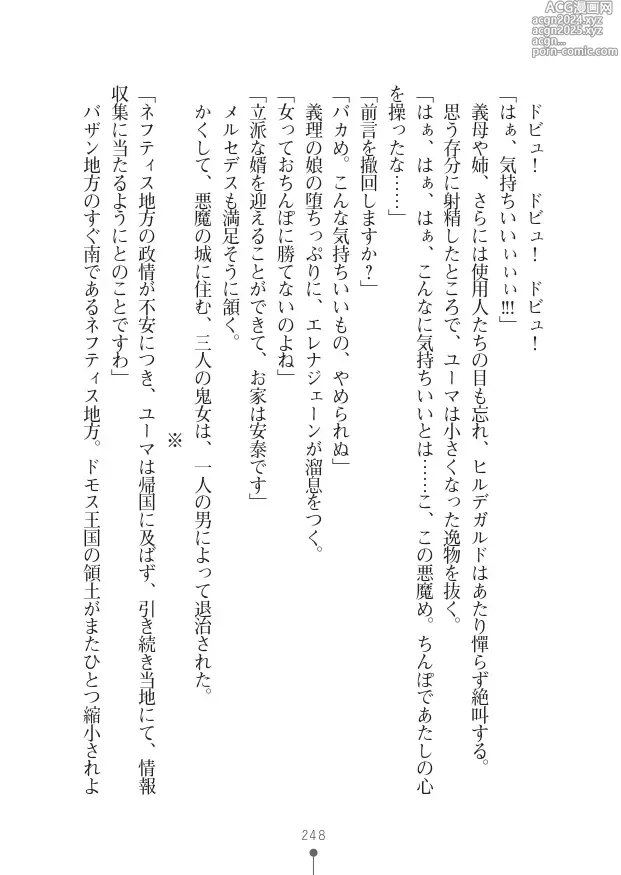 ACG漫画网
acgn2024.xyz
acgn2025.xyz
acgn...
porn-comic.com
ドビュ！　ドビュ！　ドビュ！
「はぁ、気持ちいいぃぃぃ!!!」
義母や姉、さらには使用人たちの目も忘れ、ヒルデガルドはあたり憚らず絶叫する。
思う存分に射精したところで、ユーマは小さくなった逸物を抜く。
「はぁ、はぁ、はぁ、こんなに気持ちいいとは……こ、この悪魔め。ちんぽであたしの心
を操ったな……」
「前言を撤回しますか？」
「バカめ。こんな気持ちいいもの、やめられぬ」
義理の娘の堕ちっぷりに、エレナジェーンが溜息をつく。
「女っておちんぽに勝てないのよね」
「立派な婿を迎えることができて、お家は安泰です」
メルセデスも満足そうに頷く。
かくして、悪魔の城に住む、三人の鬼女は、一人の男によって退治された。
※
「ネフティス地方の政情が不安につき、ユーマは帰国に及ばず、引き続き当地にて、情報
収集に当たるようにとのことですわ」
バザン地方のすぐ南であるネフティス地方。ドモス王国の領土がまたひとつ縮小されよ
248